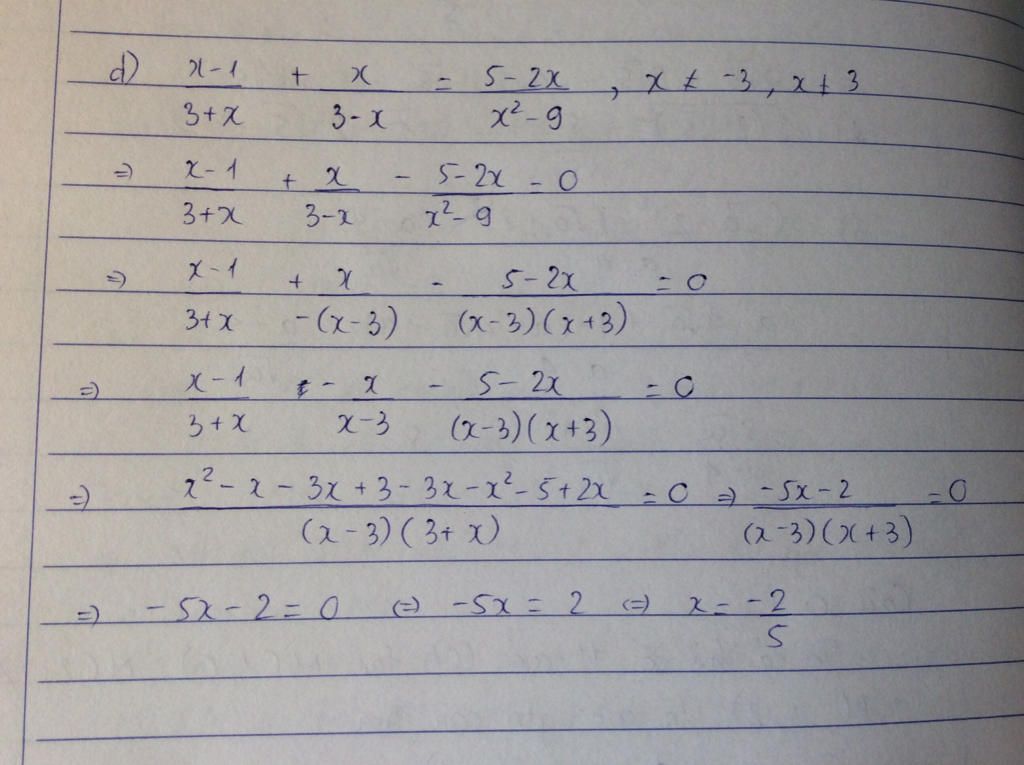 d) (x-1)/(3+x) + x/(3-x) = (5-2x)/(x²-9) , x ≠ -3, x ≠ 3
=> (x-1)/(3+x) + x/(3-x) - (5-2x)/(x²-9) = 0
=> (x-1)/(3+x) + x/(-(x-3)) - (5-2x)/((x-3)(x+3)) = 0
=> (x-1)/(3+x) - x/(x-3) - (5-2x)/((x-3)(x+3)) = 0
=> (x²-x-3x+3-3x-x²-5+2x)/((x-3)(3+x)) = 0 => (-5x-2)/((x-3)(x+3)) = 0
=> -5x-2=0 <=> -5x=2 <=> x=-2/5